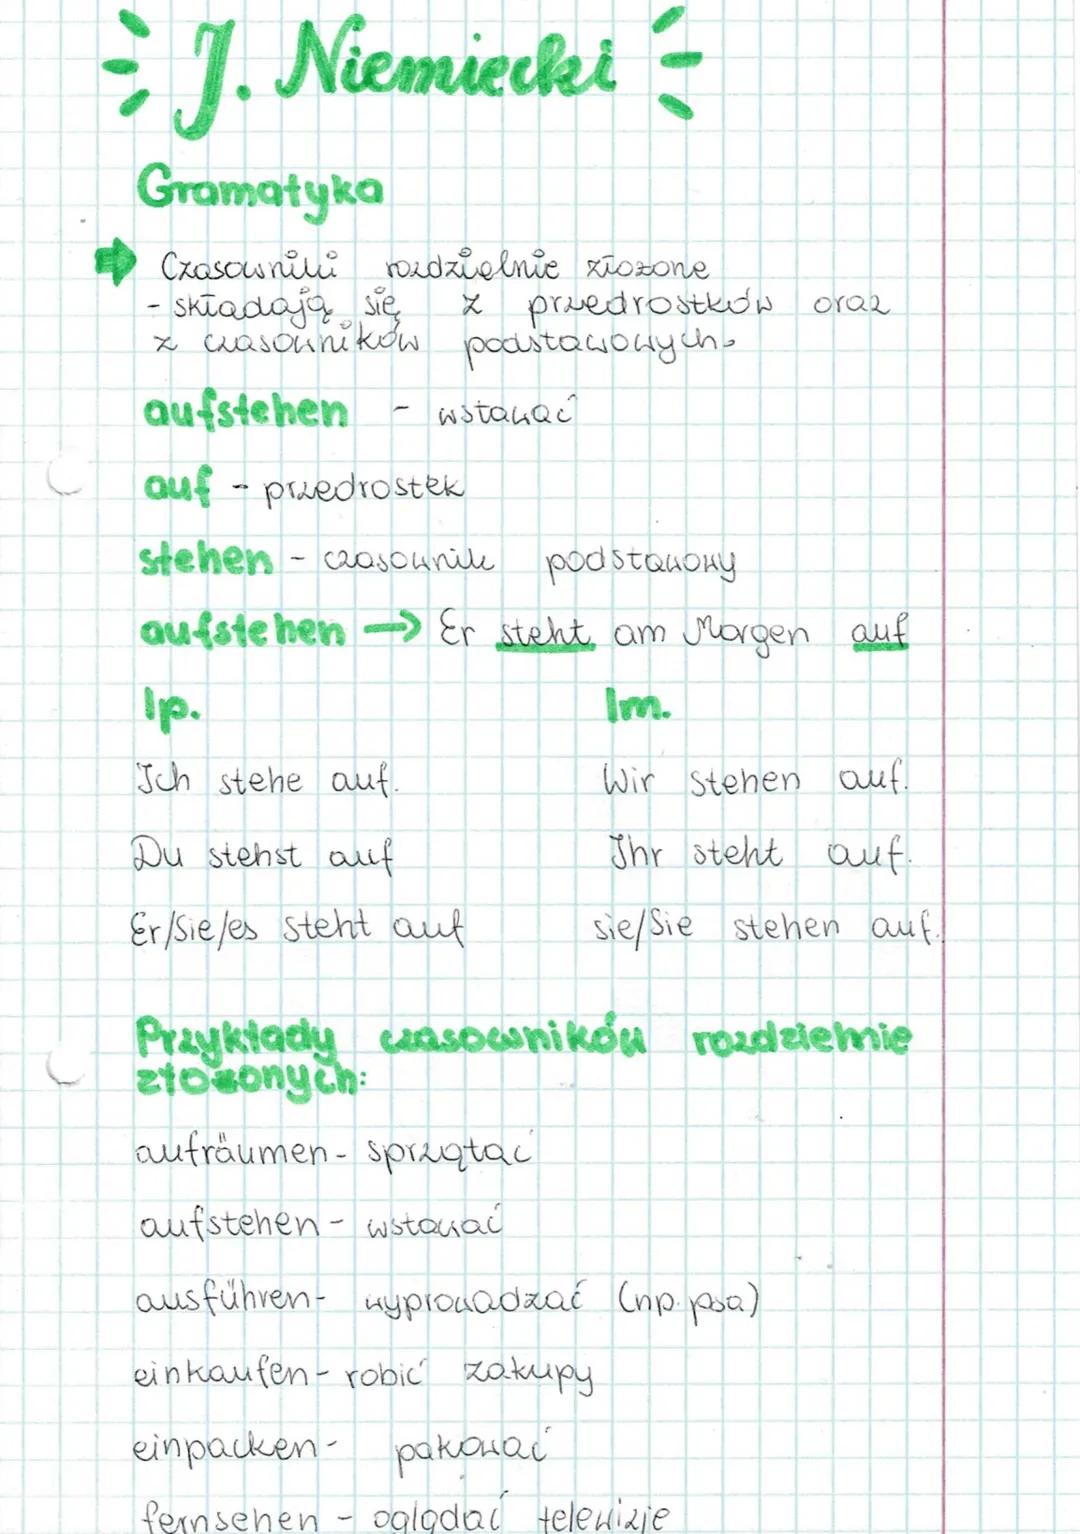 J. Niemiecki
Gramatyka
Czasowniki rozdzielnie złożone
- składają się z przedrostków oraz
z czasowników podstawowych.
aufstehen - wstawać
auf - przedrostek
stehen - czasownik podstawowy
aufstehen → Er steht am Morgen auf
lp. lm.
Ich stehe auf. Wir stehen auf.
Du stehst auf Ihr steht auf.
Er/Sie/es steht auf sie/Sie stehen auf.
Przykłady czasowników rozdzielnie
złożonych:
aufräumen - sprzątać
aufstehen - wstawać
ausführen - wyprowadzać (np. psa)
einkaufen - robić zakupy
einpacken - pakować
fernsehen - oglądać telewizje